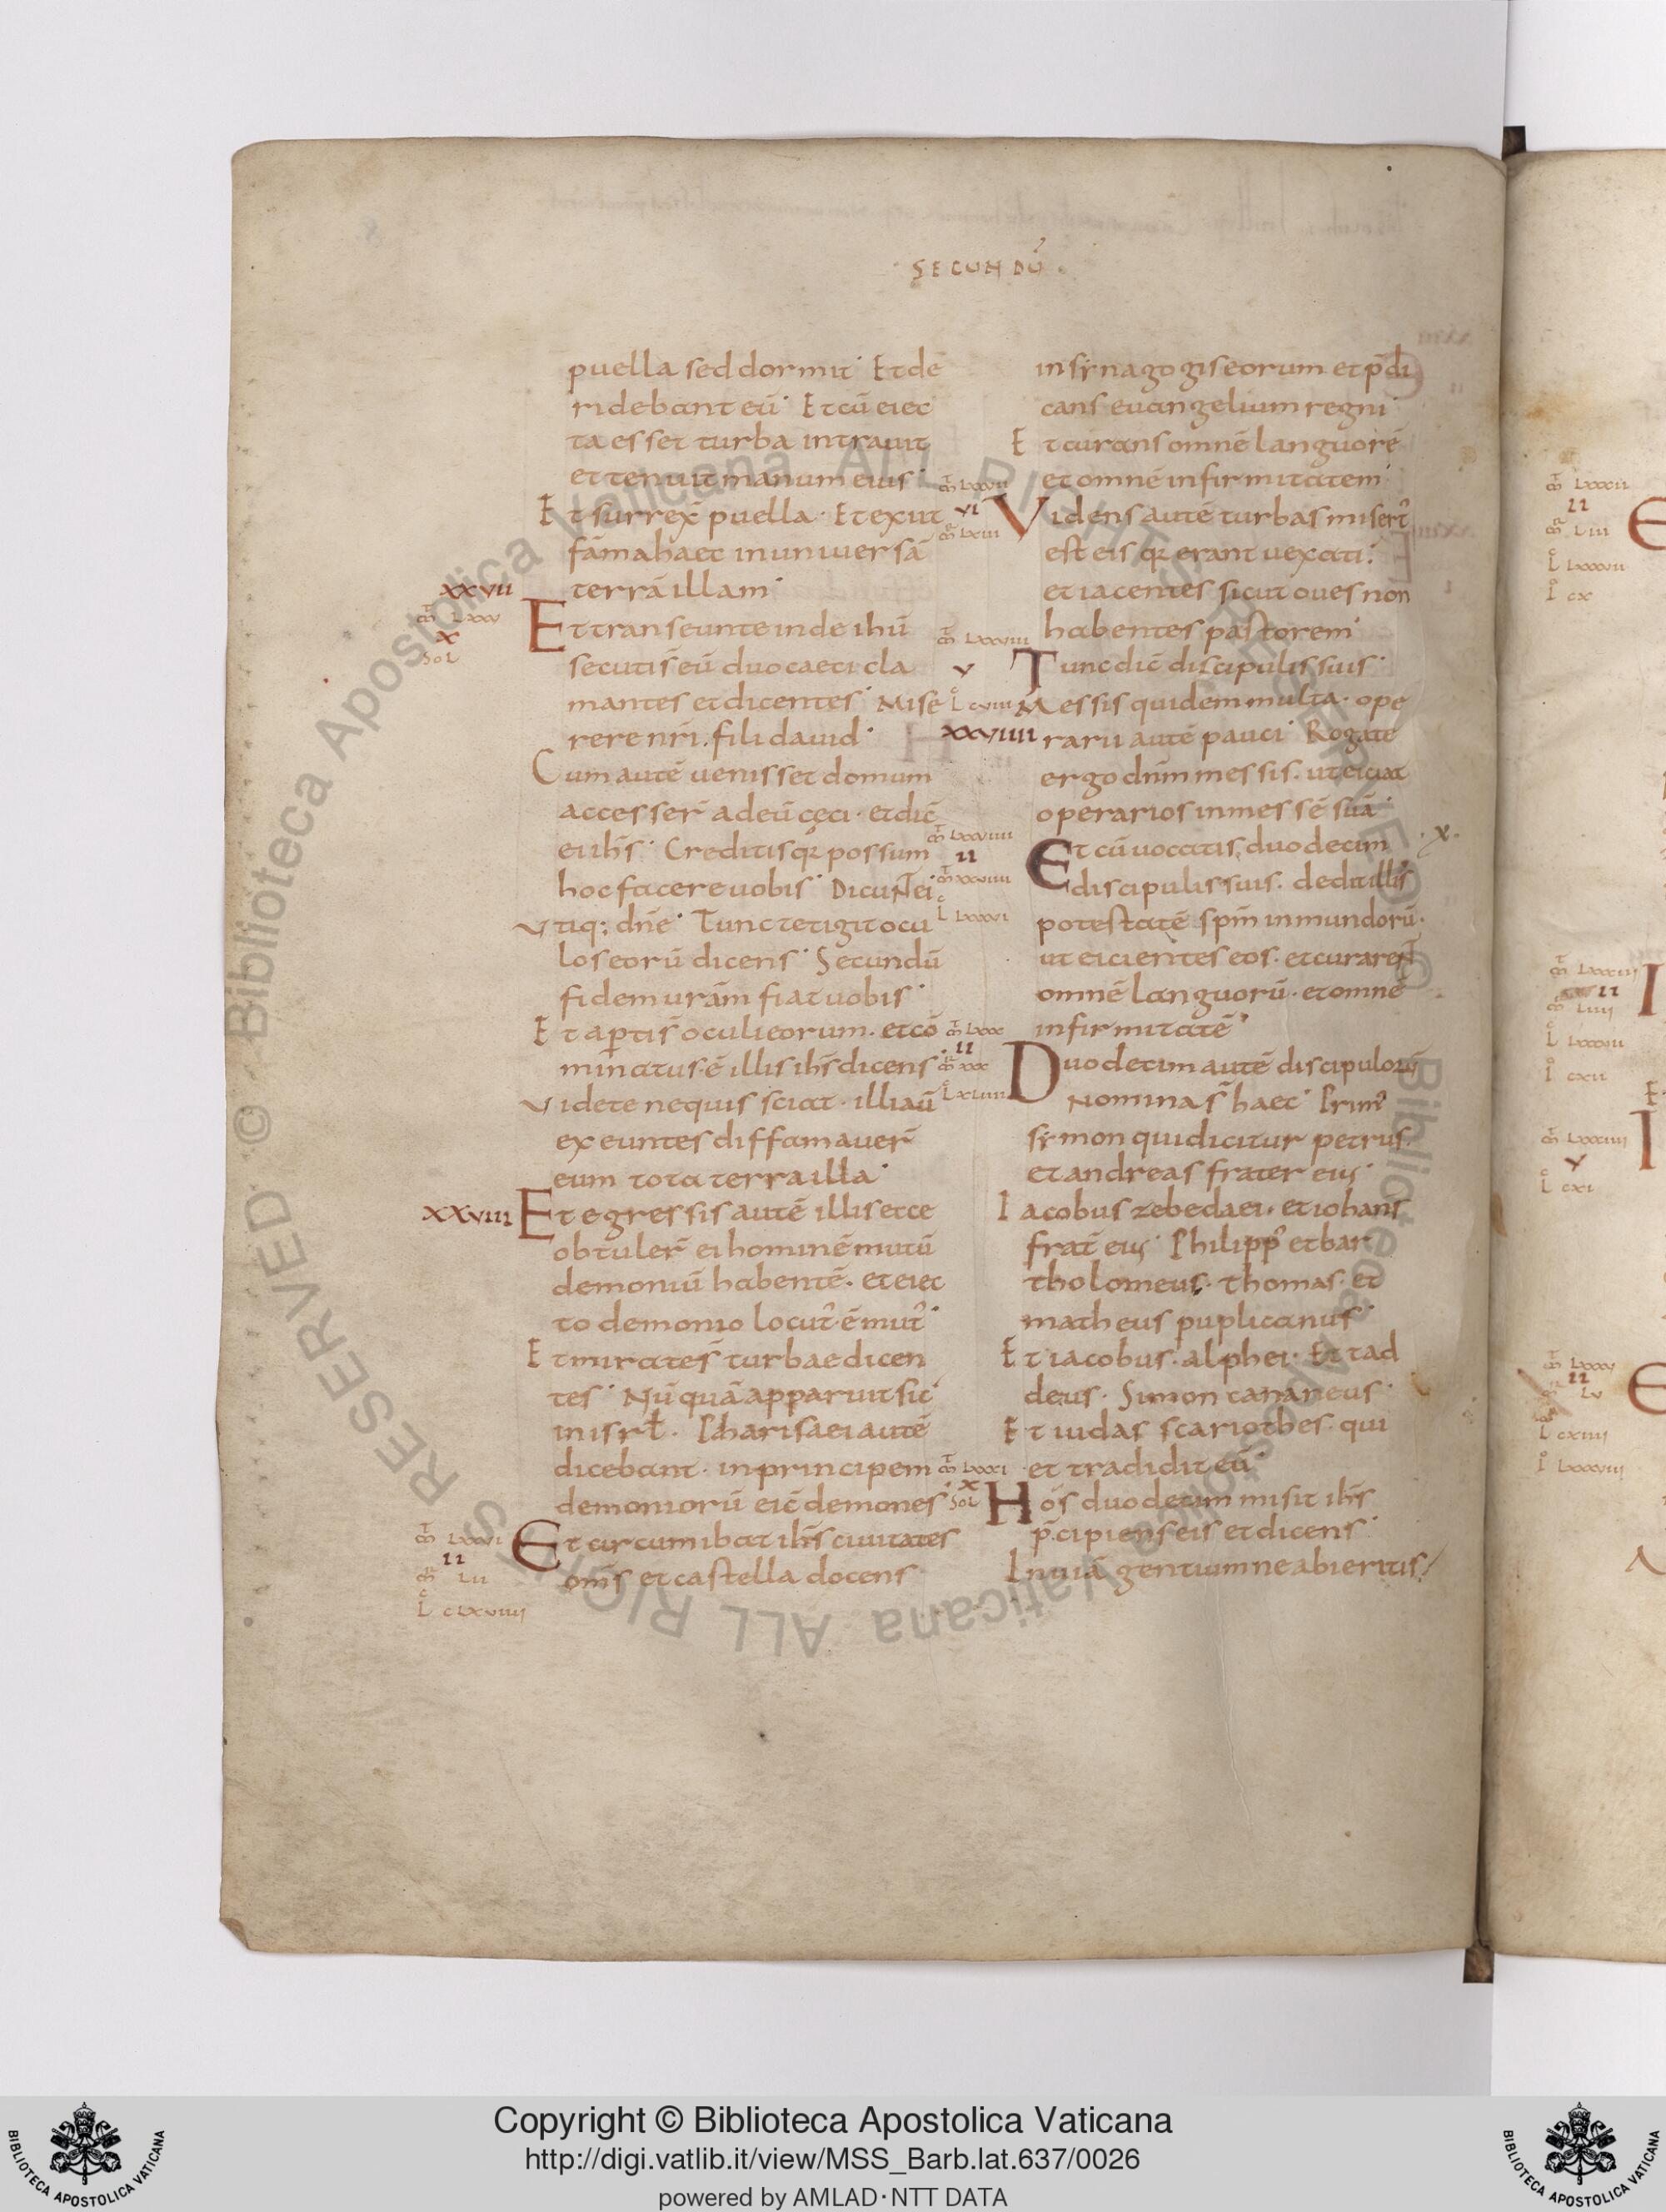 SECUNDŪ
puella sed dormit Et de
ridebant eū Et cū eiec
ta esset turba intrauit
et tenuit manum eius
Et surrex̄ puella Et exiit
fama haec in uniuersā
terrā illam
XXVII
m̄t LXXV
X
SOL
Et transeunte inde ihū
secuti s̄ eū duo caeci cla
mantes et dicentes Mise
rere nr̄i fili dauid
Cum autē uenisset domum
accesser̄ ad eū cęci et dic̄
ei ihs̄ Creditis qr possum
hoc facere uobis Dicunt ei
Vtiq; dn̄e Tunc tetigit ocu
los eorū dicens Secundū
fidem urām fiat uobis
Et apti s̄ oculi eorum et cō
minatus ē illis ihs̄ dicens
Videte nequis sciat illi aū
exeuntes diffamauer̄
eum tota terra illa
XXVIII
Et egressis autē illis ecce
obtuler̄ ei hominē mutū
demoniū habentē et eiec
to demonio locut' ē mut'
Et mirate s̄ turbae dicen
tes Nūquā apparuit sic
in isrł Pharisaei autē
dicebant in principem
demoniorū eic̄ demones
m̄t LXXVI
II
m̄r LII
Lc CLXVIIII
Et circumibat ihs̄ ciuitates
om̄s et castella docens
in synagogis eorum et p̄di
cans euangelium regni
Et curans omnē languorē
et omnē infirmitatem
m̄t LXXVII
VI
m̄r LXIII
Videns autē turbas misert'
est eis qr erant uexati
et iacentes sicut oues non
habentes pastorem
m̄t LXXVIII
V
Lc CVIII
Tunc dic̄ discipulis suis
Messis quidem multa ope
XXVIIII
rarii autē pauci Rogate
ergo dn̄m messis ut eiciat
operarios in messē suā
m̄t LXXVIIII
II
m̄r XXVIIII
Lc LXXXVI
Et cū uocatis duodecim
X
discipulis suis dedit illis
potestatē spm̄ inmundorū
ut eicientes eos et curarent
omnē languorū et omnē
infirmitatē
m̄t LXXX
II
m̄r XXX
Lc XLIIII
Duodecim autē discipulorū
nomina s̄ haec Prim'
symon qui dicitur petrus
et andreas frater eius
Iacobus zebedaei et iohans
frat̄ eius Philipp' et bar
tholomeus thomas et
matheus puplicanus
Et iacobus alphei Et tad
deus Simon cananeus
Et iudas scariothes qui
et tradidit eū
m̄t LXXXI
X
SOL
Hos duodecim misit ihs̄
p̄cipiens eis et dicens
In uiā gentium ne abieritis
Copyright © Biblioteca Apostolica Vaticana
http://digi.vatlib.it/view/MSS_Barb.lat.637/0026
powered by AMLAD·NTT DATA
BIBLIOTECA APOSTOLICA VATICANA
BIBLIOTECA APOSTOLICA VATICANA